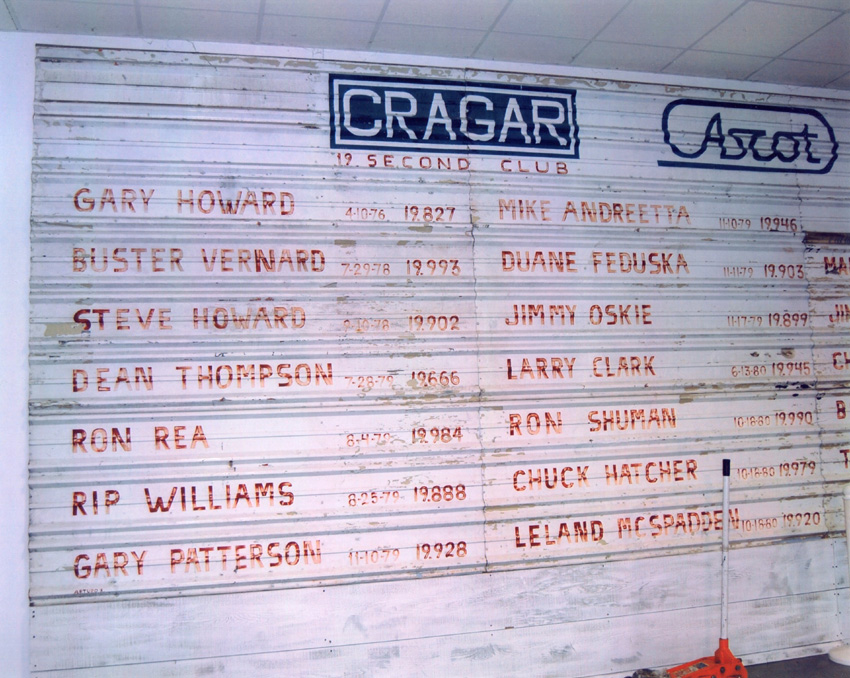 CRAGAR
Ascot
19. SECOND CLUB
GARY HOWARD 4-10-76 19.827
BUSTER VERNARD 7-29-78 19.993
STEVE HOWARD 19.902
DEAN THOMPSON 7-28-79 19.666
RON REA 8-4-79 19.984
RIP WILLIAMS 8-25-79 19.888
GARY PATTERSON 11-10-79 19.928
MIKE ANDREETTA 11-10-79 19.946
DUANE FEDUSKA 11-11-79 19.903
JIMMY OSKIE 11-17-79 19.899
LARRY CLARK 6-13-80 19.945
RON SHUMAN 10-18-80 19.990
CHUCK HATCHER 10-18-80 19.979
LELAND MCSPADDEN 10-18-80 19.920
MA
JI
CH
B
T